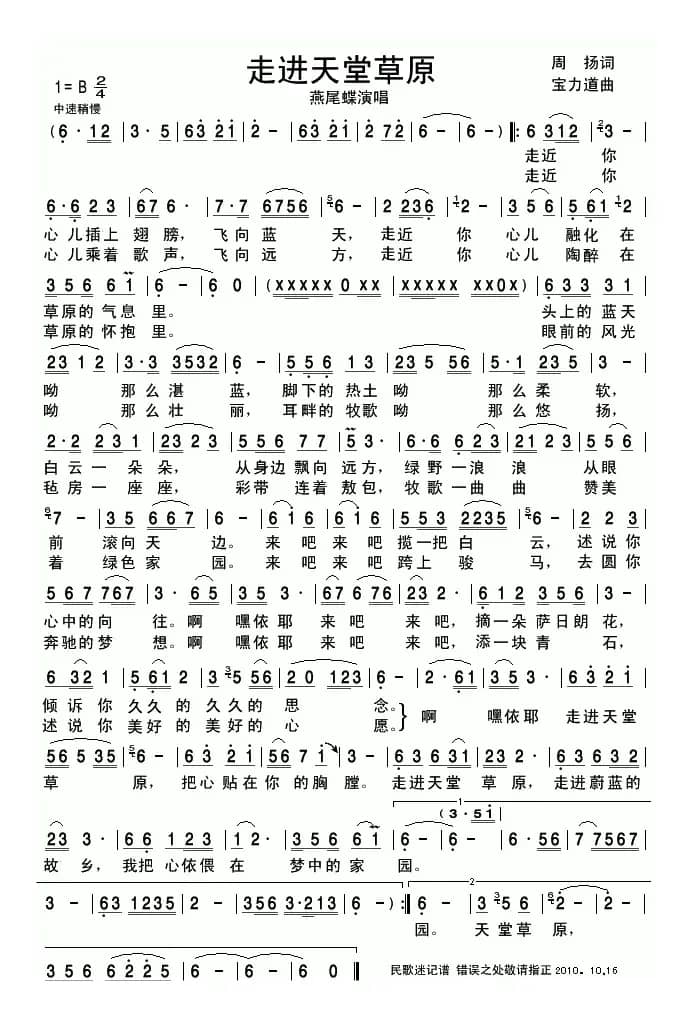 走进天堂草原
周 扬词
1=B 2/4
宝力道曲
中速稍慢
燕尾蝶演唱
(6· 12 | 3· 5 | 63 21 | 2- | 63 21 | 2 72 | 6- | 6-) ‖: 6 312 | 3- |
走近 你
走近 你
6·6 2 3 | 67 6· | 7·7 6756 | 6- | 2 236 | 2- | 3 5 6 | 5 61 2 |
心儿插上 翅 膀， 飞向 蓝 天， 走近 你 心儿 融化 在
心儿乘着 歌 声， 飞向 远 方， 走近 你 心儿 陶醉 在
3 5 6 6 1 | 6- | 6 0 | (xxxxx 0 xx | xxxxxx xx0x) | 6 3 3 3 1 |
草原的 气息 里。 头上的 蓝天
草原的 怀抱 里。 眼前的 风光
23 1 2 | 3·3 3532 | 6- | 5 5 6 1 3 | 2 3 5 5 6 | 5·1 2 3 5 |
呦 那么 湛 蓝， 脚下的 热土 呦 那么 柔 软，
呦 那么 壮 丽， 耳畔的 牧歌 呦 那么 悠 扬，
2·2 2 3 1 | 23 2 3 | 5 5 6 7 7 | 5 3· | 6·6 6 2 3 | 21 2 3 | 5 5 6 |
白云 一 朵 朵， 从身边 飘向 远方， 绿野 一浪 浪 从眼
毡房 一 座 座， 彩带 连着 敖包， 牧歌 一曲 曲 赞美
7- | 3 5 6 6 7 | 6- | 6 1 6 | 6 1 6 | 5 5 3 2235 | 6- | 5 5 3 |
前 滚向 天 边。 来 吧 来 吧 揽一把 白 云， 述说你
着 绿色 家 园。 来 吧 来 吧 跨上 骏 马， 去圆你
5 6 7 767 | 3· 65 | 3·5 5 6 | 7 6 7656 | 23 2· | 6 1 2 3 5 6 | 3- |
心中的 向 往。 啊 嘿依耶 来 吧 来 吧， 摘一朵 萨日朗 花，
奔驰的 梦 想。 啊 嘿依耶 来 吧 来 吧， 添一块 青 石，
6 32 1 | 5 61 2 | 3 5 6 | 2 0 3 5 | 6- | 2· 61 | 3·5 5 6 | 63 21 |
倾诉 你 久久 的 久久的 思 念。 啊 嘿依耶 走进天堂
述说 你 美好 的 美好的 心 愿。
56 5 35 | 6- | 6 3 2 3 | 21 2 3 | 56 7 1 | 6 3 6 31 | 23 2· | 6 3 6 3 2 |
草 原， 把心 贴在 你 的胸 膛。 走进天堂 草 原， 走进蔚蓝的
1
(3·51
23 3· | 6 6 1 2 3 | 1 2· | 3 5 6 6 1 | 6- | 6- | 6· 56 | 7 7567 |
故 乡， 我把 心依偎 在 梦中的 家 园。
2
3- | 63 1235 | 2- | 235 356 | 3·213 | 6- | 6-) :‖ 6- | 3 5 6 | 6 2- | 2- |
园。 天 堂 草 原，
3 5 6 6 2 1 | 6- | 6- | 6 0 ‖
民歌迷记谱 错误之处敬请指正 2010. 10.16